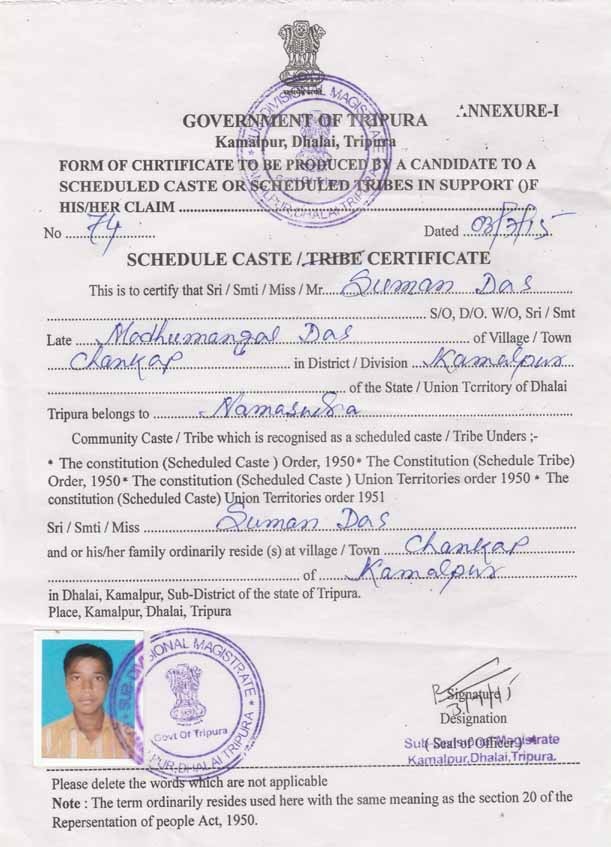 ANNEXURE-I
GOVERNMENT OF TRIPURA
Kamalpur, Dhalai, Tripura
FORM OF CHRTIFICATE TO BE PRODUCED BY A CANDIDATE TO A
SCHEDULED CASTE OR SCHEDULED TRIBES IN SUPPORT OF
HIS/HER CLAIM
No 74 Dated
SCHEDULE CASTE / TRIBE CERTIFICATE
This is to certify that Sri / Smti / Miss / Mr. Suman Das
S/O, D/O. W/O, Sri / Smt
Late Madhumangal Das of Village / Town
Chankap in District / Division Kamalpur
of the State / Union Tcrritory of Dhalai
Tripura belongs to Namasudra
Community Caste / Tribe which is recognised as a scheduled caste / Tribe Unders ;-
* The constitution (Scheduled Caste ) Order, 1950* The Constitution (Schedule Tribe)
Order, 1950* The constitution (Scheduled Caste ) Union Territories order 1950 * The
constitution (Scheduled Caste) Union Territories order 1951
Sri / Smti / Miss Suman Das
and or his/her family ordinarily reside (s) at village / Town Chankap
of Kamalpur
in Dhalai, Kamalpur, Sub-District of the state of Tripura.
Place, Kamalpur, Dhalai, Tripura
SUB DIVISIONAL MAGISTRATE
Govt Of Tripura
KAMALPUR, DHALAI, TRIPURA
Signature
Designation
(Seal of Officer)
Sub-Divisional Magistrate
Kamalpur, Dhalai, Tripura.
Please delete the words which are not applicable
Note : The term ordinarily resides used here with the same meaning as the section 20 of the
Repersentation of people Act, 1950.